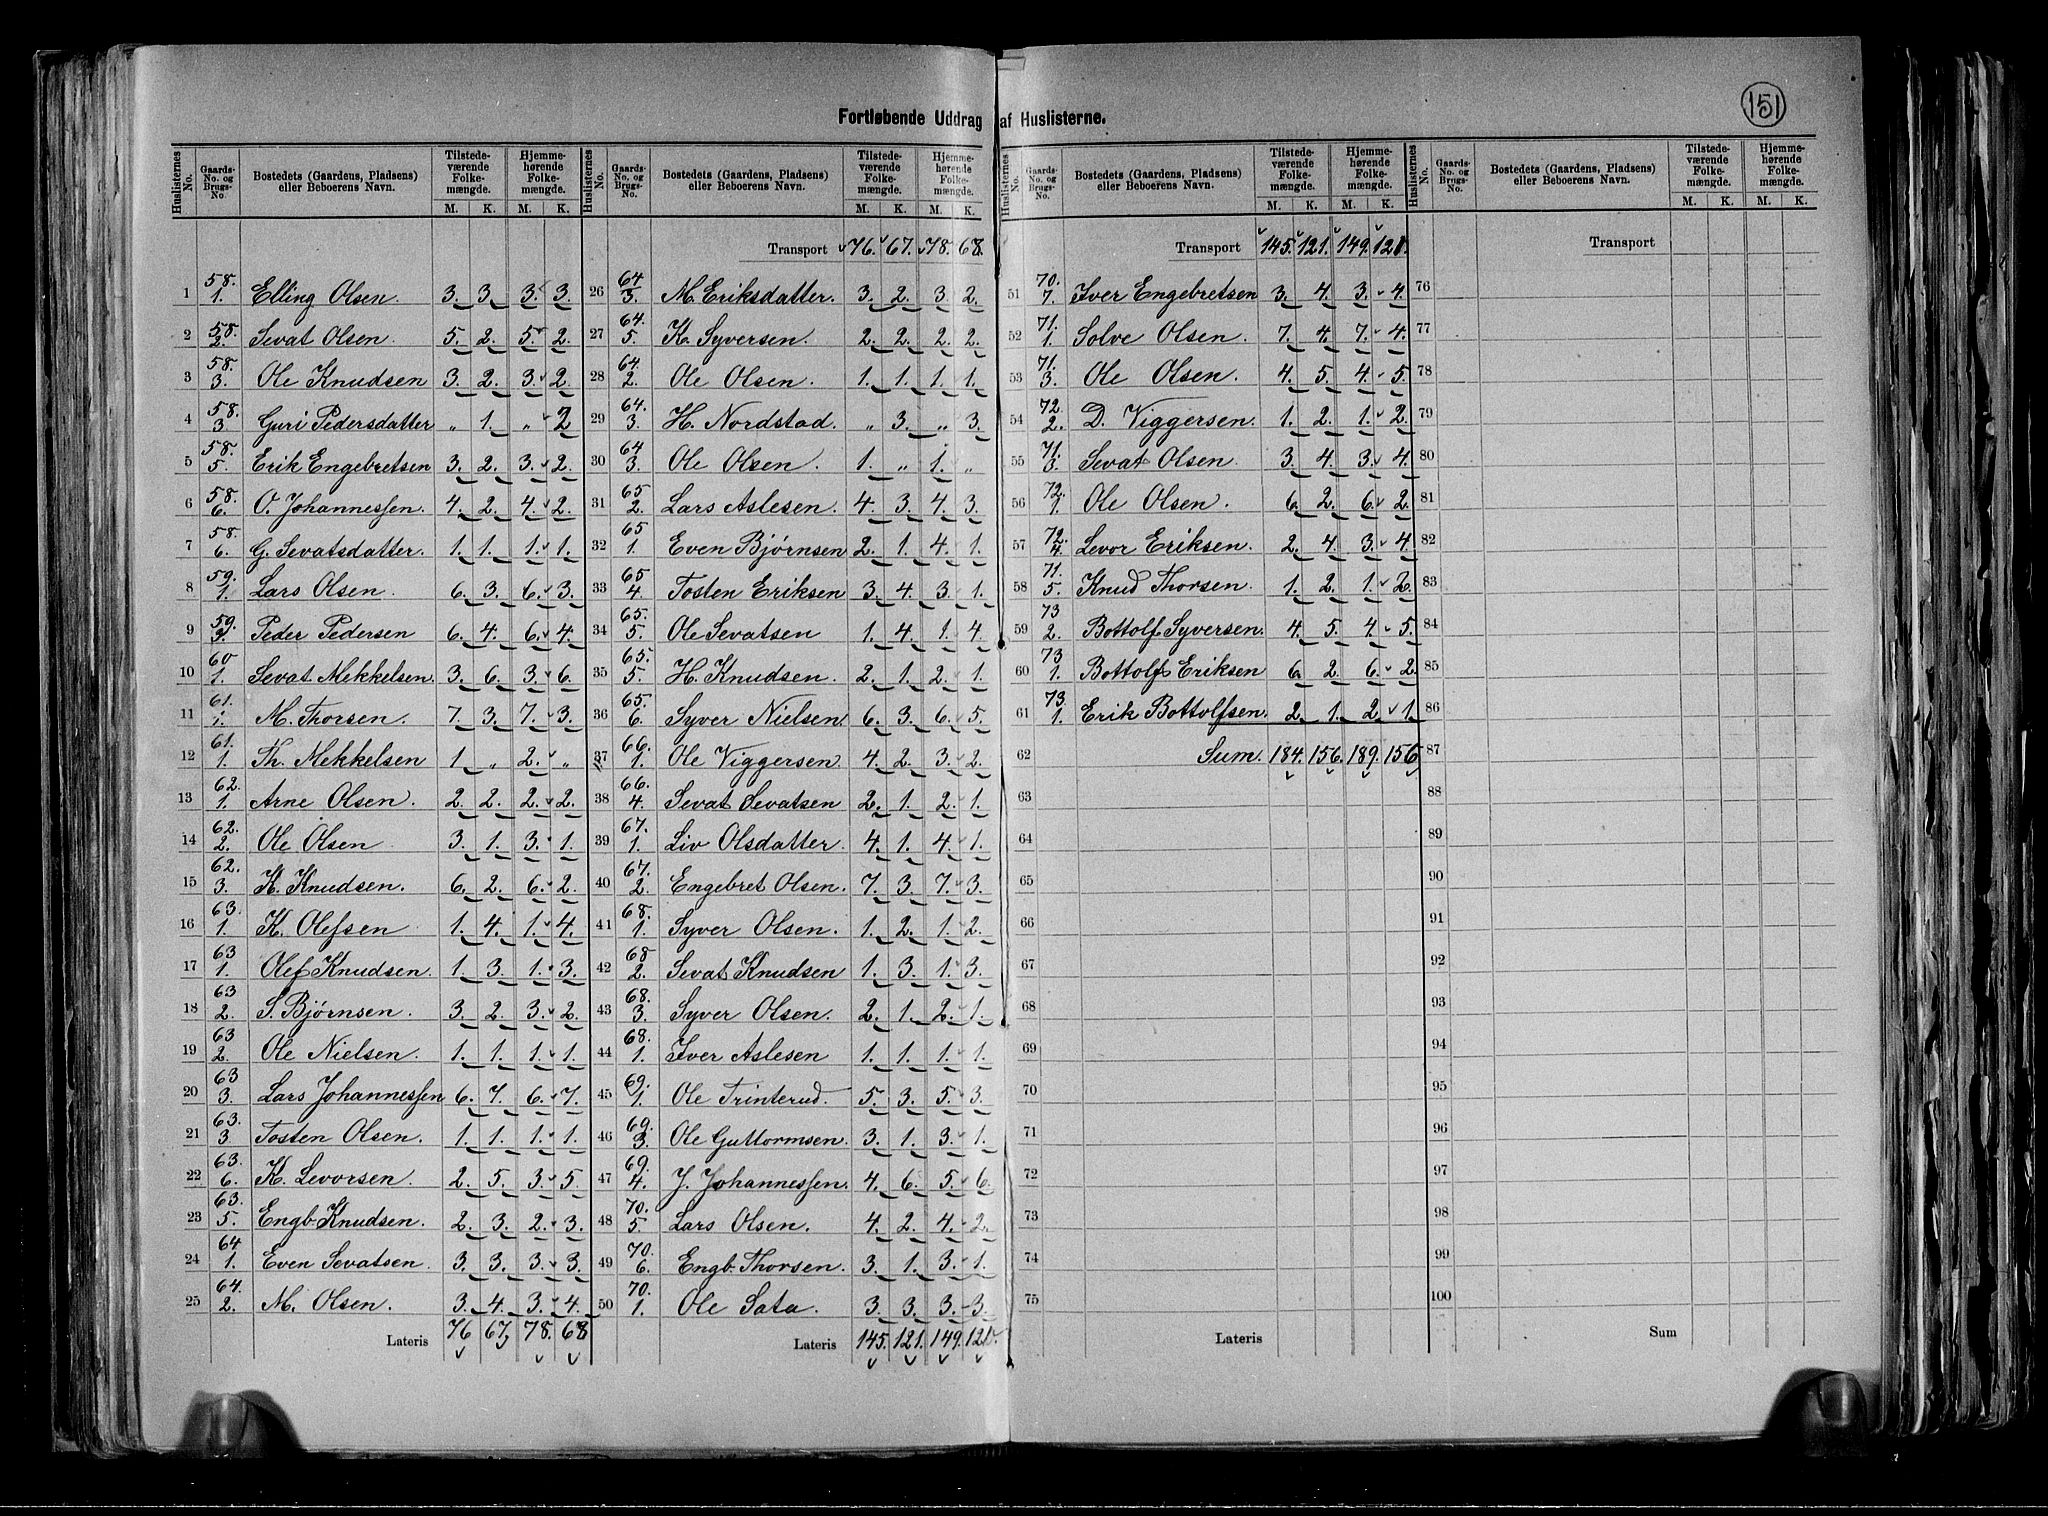 151
Fortløbende Uddrag af Huslisterne.
Huslisternes No. | Gaards-No. og Brugs-No. | Bostedets (Gaardens, Pladsens) eller Beboerens Navn. | Tilstedeværende Folkemængde. M. K. | Hjemmehørende Folkemængde. M. K.
1 58. 1. Elling Olsen 3. 3. 3. 3.
2 58. 2. Sevat Olsen 5. 2. 5. 2.
3 58. 3. Ole Knudsen 3. 2. 3. 2.
4 58. 3. Guri Pedersdatter „ 1. „ 2
5 58. 5. Erik Engebretsen 3. 2. 3. 2.
6 58. 6. O. Johannessen. 4. 2. 4. 2.
7 58. 6. G. Sevatsdatter. 1. 1. 1. 1.
8 59. 1. Lars Olsen. 6. 3. 6. 3.
9 59. 2. Peder Pedersen 6. 4. 6. 4.
10 60 1. Sevat Mekkelsen. 3. 6. 3. 6.
11 61. 1. M. Thorsen. 7. 3. 7. 3.
12 61. 1. Th. Mekkelsen 1. „ 2. „
13 62. 1. Arne Olsen. 2. 2. 2. 2.
14 62. 2. Ole Olsen 3. 1. 3. 1.
15 62. 3. K. Knudsen. 6. 2. 6. 2.
16 63. 1. K. Olefsen 1. 4. 1. 4.
17 63 1. Olef Knudsen. 1. 3. 1. 3.
18 63 2. S. Bjørnsen. 3. 2. 3. 2.
19 63 2. Ole Nielsen. 1. 1. 1. 1.
20 63 3. Lars Johannessen 6. 7. 6. 7.
21 63. 3. Tosten Olsen. 1. 1. 1. 1.
22 63. 6. K. Levorsen. 2. 5. 3. 5.
23 63. 5. Engb. Knudsen. 2. 3. 2. 3.
24 64 1. Even Sevatsen. 3. 3. 3. 3.
25 64. 2. M. Olsen. 3. 4. 3. 4.
Lateris 76 67, 78. 68
Huslisternes No. | Gaards-No. og Brugs-No. | Bostedets (Gaardens, Pladsens) eller Beboerens Navn. | Tilstedeværende Folkemængde. M. K. | Hjemmehørende Folkemængde. M. K.
Transport 76. 67. 78. 68.
26 64 3. M. Eriksdatter. 3. 2. 3. 2.
27 64. 5. K. Syversen. 2. 2. 2. 2.
28 64. 2. Ole Olsen. 1. 1. 1. 1.
29 64. 3. H. Nordstad. „ 3. „ 3.
30 64 3. Ole Olsen. 1. „ 1. „
31 65 2. Lars Aslesen. 4. 3. 4. 3.
32 65 1. Even Bjørnsen 2. 1. 4. 1.
33 65 4. Tosten Eriksen 3. 4. 3. 1.
34 65. 5. Ole Sevatsen 1. 4. 1. 4.
35 65. 5. H. Knudsen. 2. 1. 2. 1.
36 65. 6. Syver Nielsen. 6. 3. 6. 5.
37 66. 1. Ole Viggersen 4. 2. 3. 2.
38 66. 4. Sevat Sevatsen 2. 1. 2. 1.
39 67. 1. Liv Olsdatter. 4. 1. 4. 1.
40 67. 2. Engebret Olsen. 7. 3. 7. 3.
41 68. 1. Syver Olsen. 1. 2. 1. 2.
42 68 2. Sevat Knudsen 1. 3. 1. 3.
43 68. 3. Syver Olsen. 2. 1. 2. 1.
44 68. 1. Iver Aslesen 1. 1. 1. 1.
45 69. 1. Ole Trinterud. 5. 3. 5. 3.
46 69. 3. Ole Guttormsen. 3. 1. 3. 1.
47 69. 4. J. Johannessen. 4. 6. 5. 6.
48 70. 5. Lars Olsen. 4. 2. 4. 2.
49 70. 6. Engb. Thorsen. 3. 1. 3. 1.
50 70. 1. Ole Sata. 3. 3. 3. 3.
Lateris 145. 121. 149.
Huslisternes No. | Gaards-No. og Brugs-No. | Bostedets (Gaardens, Pladsens) eller Beboerens Navn. | Tilstedeværende Folkemængde. M. K. | Hjemmehørende Folkemængde. M. K.
Transport 145. 121. 149.
51 70. 7. Iver Engebretsen 3. 4. 3. 4.
52 71. 1. Solve Olsen. 7. 4. 7. 4.
53 71. 3. Ole Olsen. 4. 5. 4. 5.
54 72. 2. D. Viggersen. 1. 2. 1. 2.
55 71. 3. Sevat Olsen. 3. 4. 3. 4.
56 72. 1. Ole Olsen. 6. 2. 6. 2.
57 72. 4. Levor Eriksen. 2. 4. 3. 4.
58 71. 5. Knud Thorsen. 1. 2. 1. 2.
59 73 2. Bottolf Syversen. 4. 5. 4. 5.
60 73 1. Bottolf Eriksen 6. 2. 6. 2.
61 73. 1. Erik Bottolfsen. 2. 1. 2. 1.
62 Sum. 184. 156. 189. 156
63
64
65
66
67
68
69
70
71
72
73
74
75
Lateris
Huslisternes No. | Gaards-No. og Brugs-No. | Bostedets (Gaardens, Pladsens) eller Beboerens Navn. | Tilstedeværende Folkemængde. M. K. | Hjemmehørende Folkemængde. M. K.
Transport
76
77
78
79
80
81
82
83
84
85
86
87
88
89
90
91
92
93
94
95
96
97
98
99
100
Sum